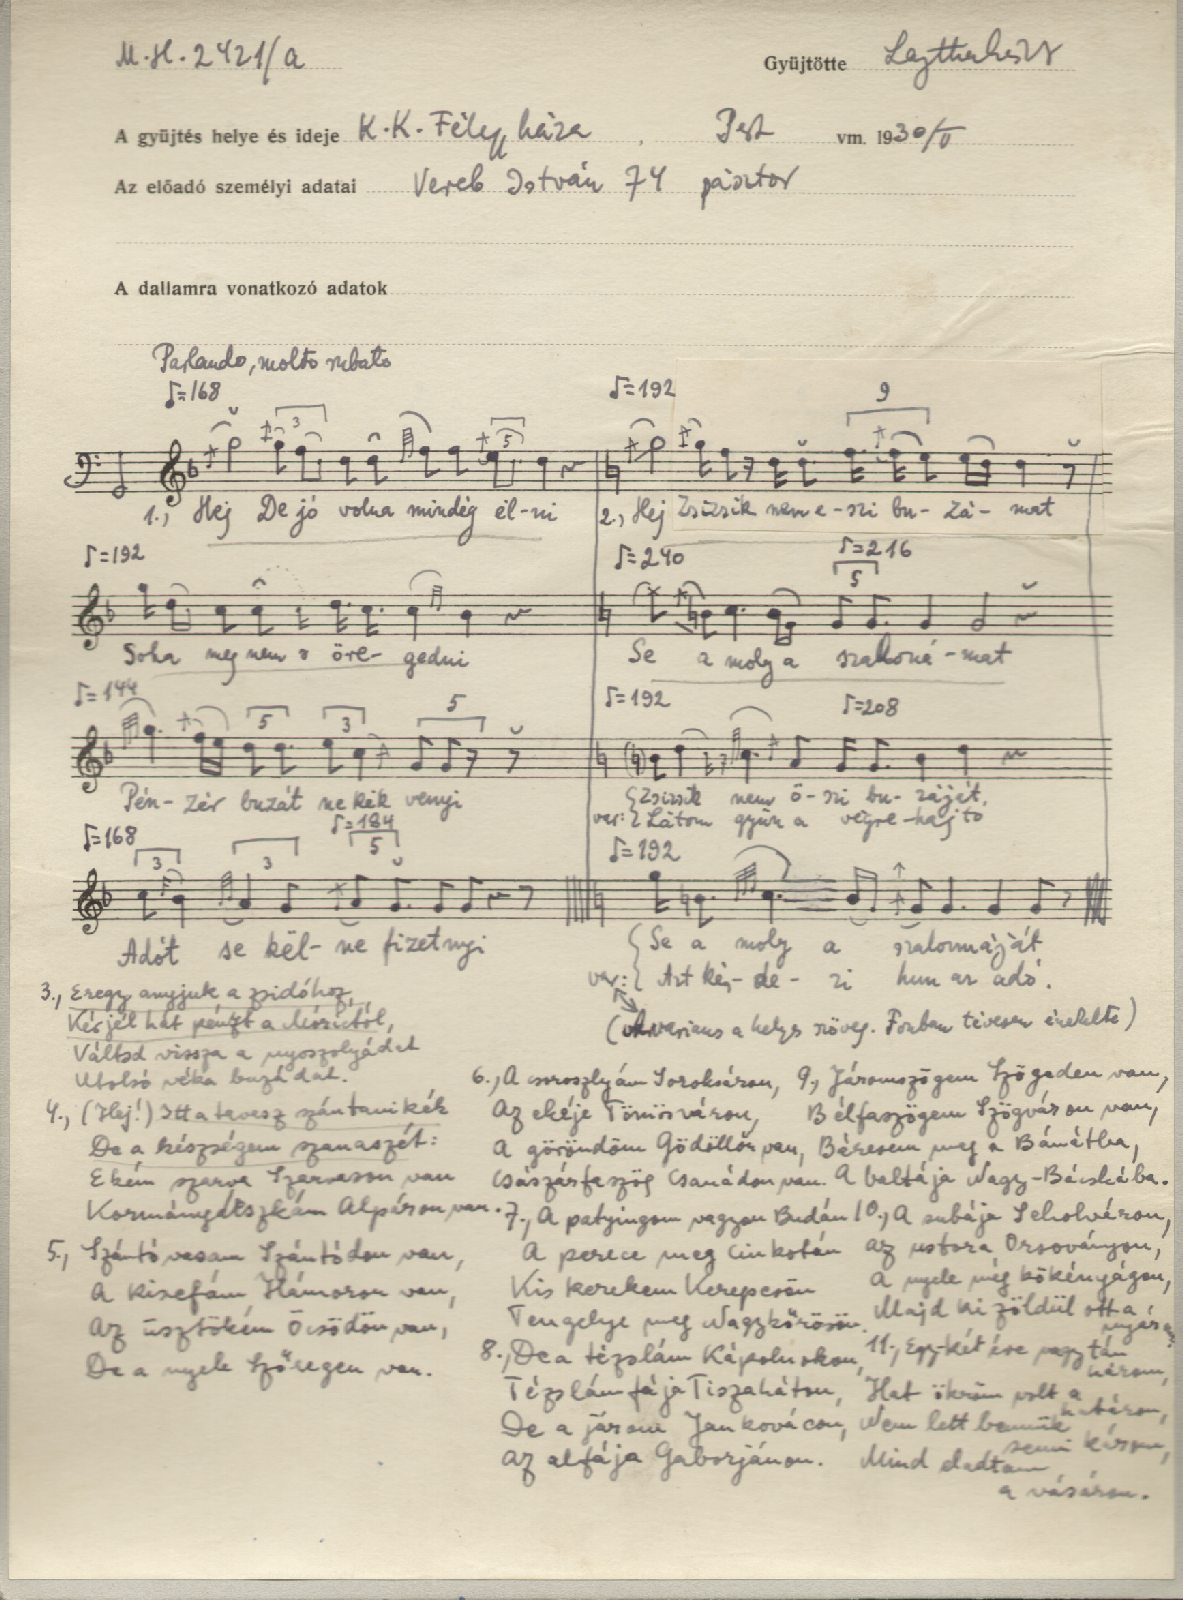 M.H. 2421/a
Gyüjtötte
A gyüjtés helye és ideje K.K. Félegyháza, Pest vm. 1930/V
Az előadó személyi adatai Vereb István 74 pásztor
A dallamra vonatkozó adatok
Parlando, molto rubato
♪=168 ♪=192
3 5 9
1., Hej De jó volna mindég él-ni 2., Hej Zsizsik nem e-szi bu-zá-mat
♪=192 ♪=240 ♪=216
5
Soha meg nem öre-gedni Se a moly a szaloná-mat
♪=144 ♪=192 ♪=208
5 3 5
Pén-zér buzát nekék venyi Zsizsik nem ö-szi bu-záját,
var: Látom gyün a végre-hajtó
♪=168 ♪=184 ♪=192
3 3 5
Adót se kél-ne fizetnyi Se a moly a szalonnáját
var: Azt kér-de-zi hun az adó.
(varians a helyes szöveg. Fonban tévesen énekelte)
3., Eregy anyjuk a zsidóhoz,
Kérjél hát pénzt a Móric tól,
Váltsd vissza a nyoszolyádat
Utolsó véka buzádat.
4., (Hej!) Itt a tavasz szántani kék
De a készségem szanaszét:
Ekém szarva Szarvason van
Kormánydeszkám Alpáron van.
5., Szántóvasam Szántódon van,
A kisefám Hámoron van,
Az üsztökém Öcsödön van,
De a nyele Szőregen van.
6., A csoroszlyám Soroksáron,
Az ekéje Tömösváron,
A göröndöm Gödöllőn van,
Császárfaszög Csanádon van.
7., A patyingom vagyon Budán
A perece meg Cinkotán
Kis kerekem Kerepesön
Tengelye meg Nagykőrösön.
8., De a tézslám Kápolnokon,
Tézslám fája Tiszaháton,
De a járom Jankovácon,
Az alfája Gaborjánon.
9., Járomszögem Szögeden van,
Bélfaszögem Szögváron van,
Béresem meg a Bánátba,
A baltája Nagy-Bácskába.
10., A subája Seholváron,
Az ustora Orsoványon,
A nyele még kökényágon,
Majd kizöldül ott a nyáron
11., Egy-két éve vagy tán három,
Hat ökröm volt a határon,
Nem lett bennük semmi károm,
Mind eladtam a vásáron.